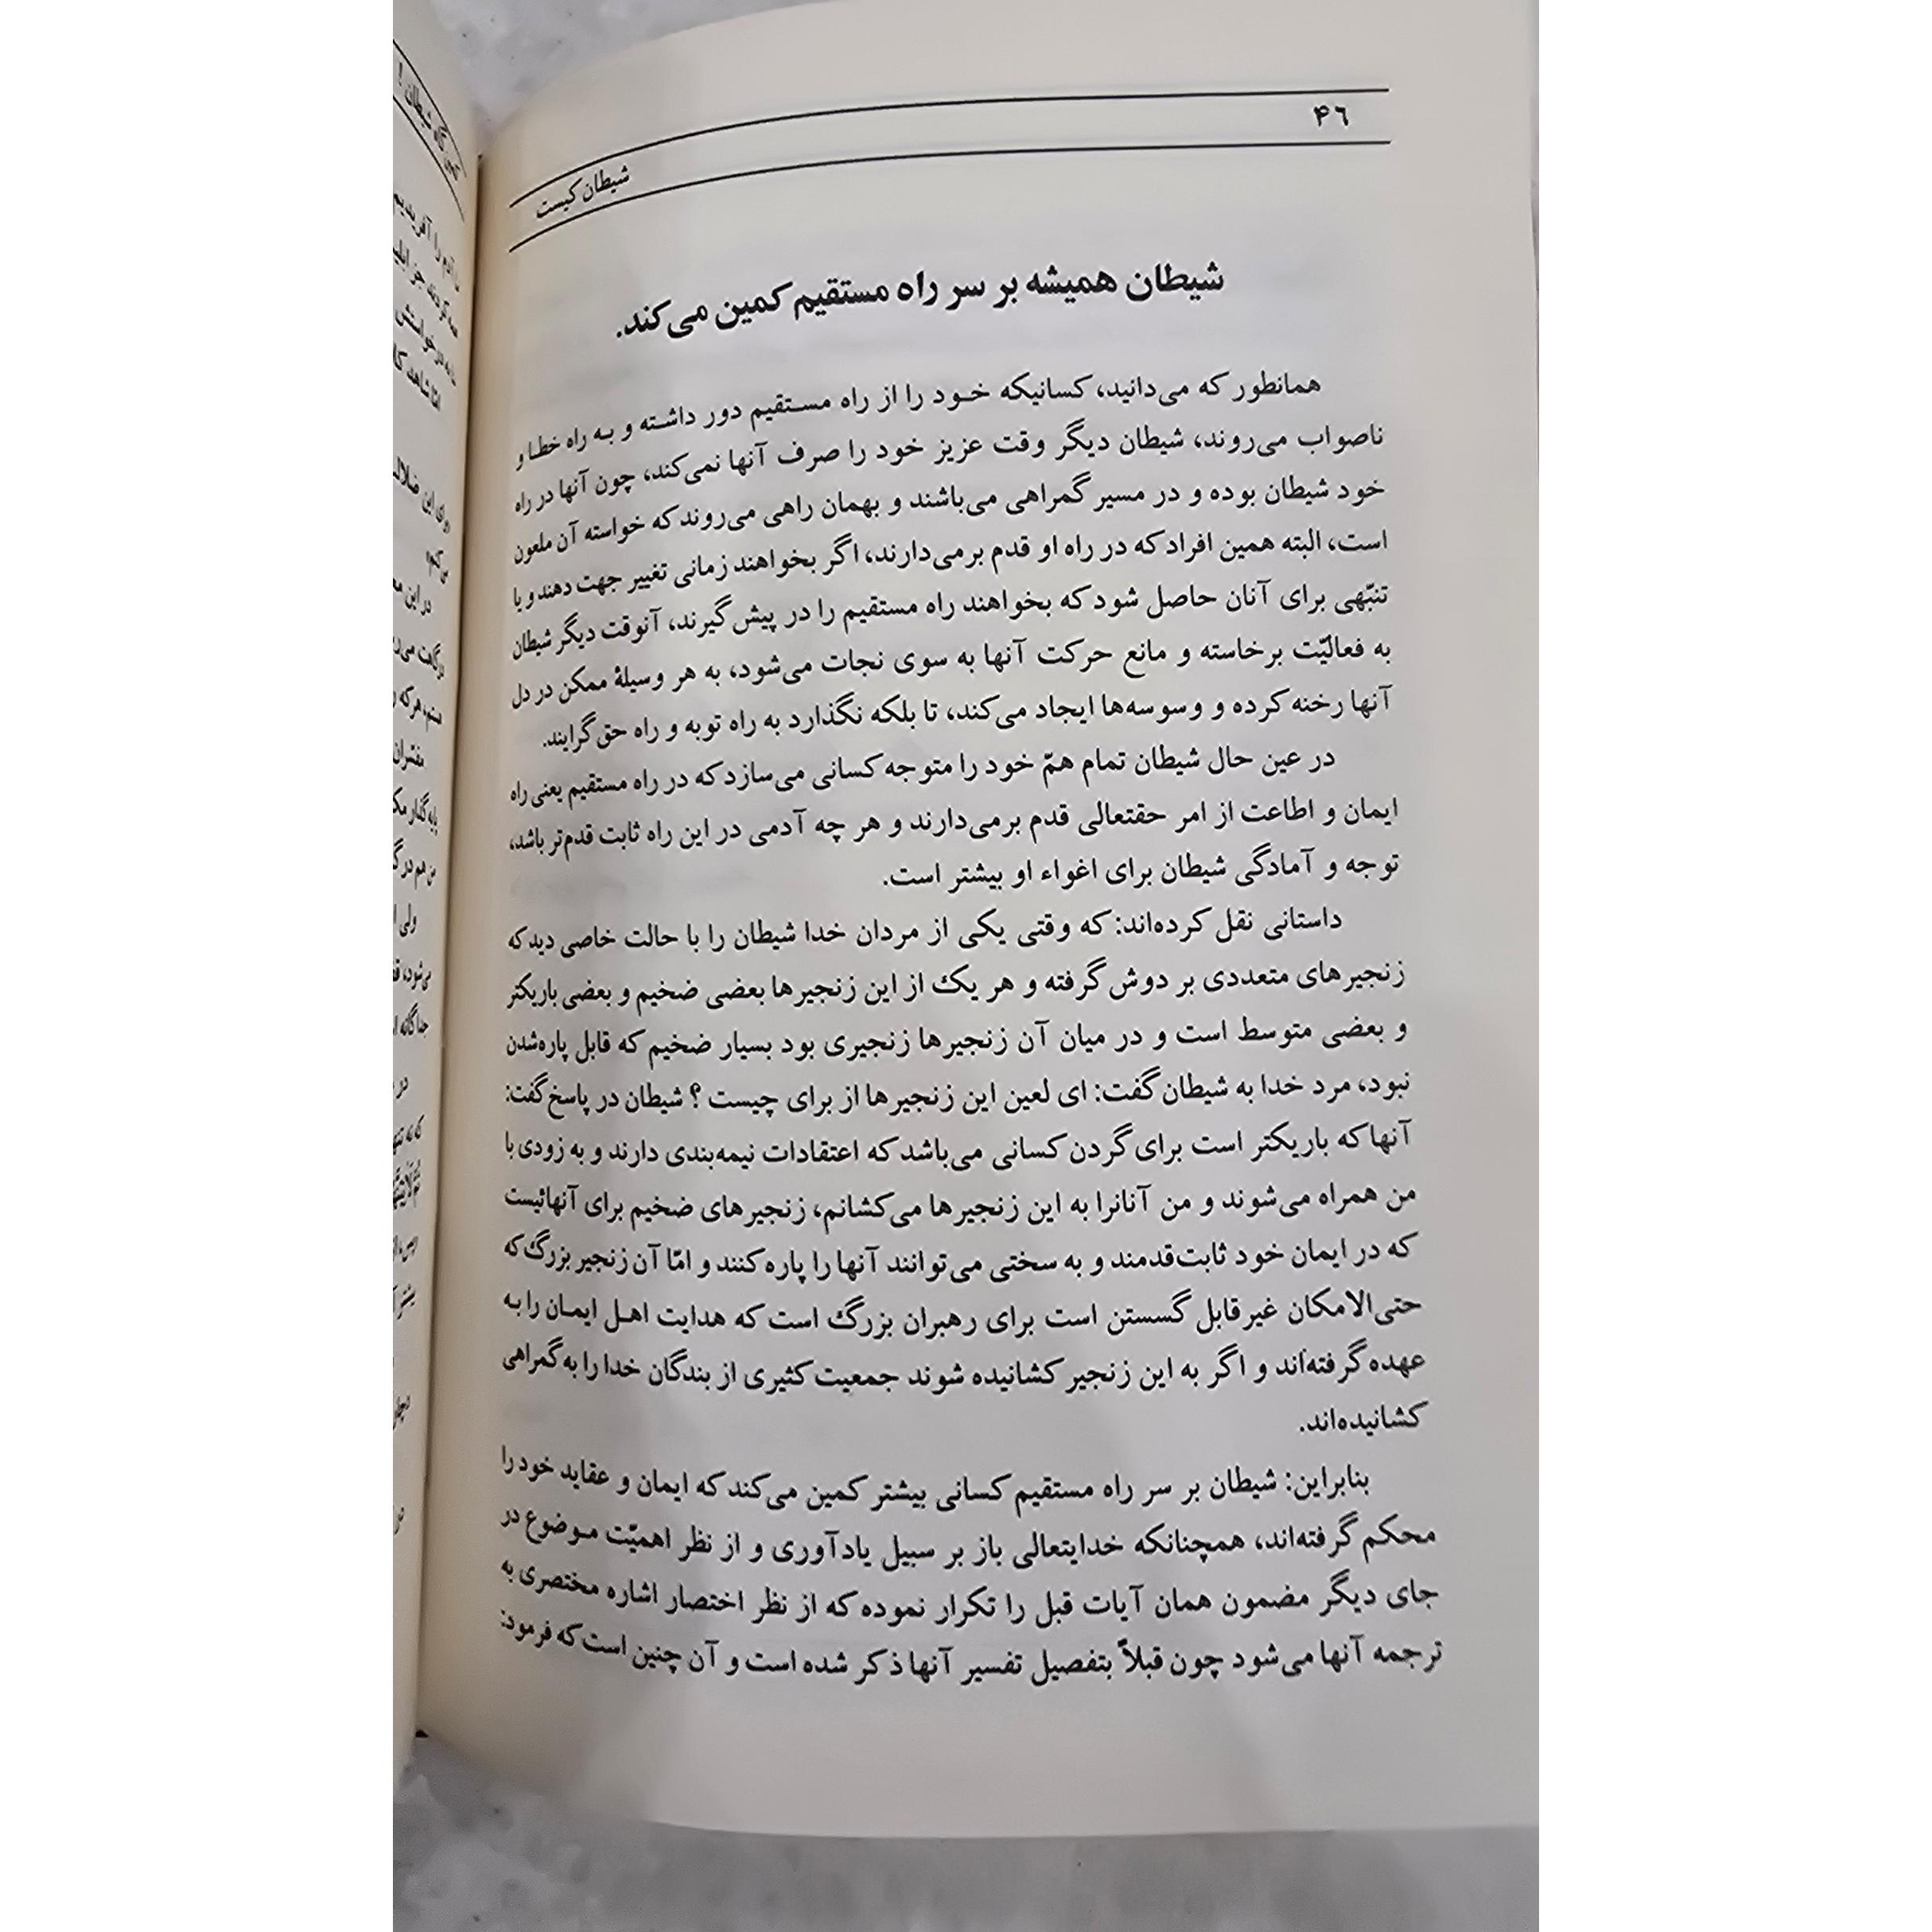 ۴۶
شیطان کیست
شیطان همیشه بر سر راه مستقیم کمین می‌کند.
همانطور که می‌دانید، کسانیکه خود را از راه مستقیم دور داشته و به راه خطا و
ناصواب می‌روند، شیطان دیگر وقت عزیز خود را صرف آنها نمی‌کند، چون آنها در راه
خود شیطان بوده و در مسیر گمراهی می‌باشند و بهمان راهی می‌روند که خواسته آن ملعون
است، البته همین افراد که در راه او قدم برمی‌دارند، اگر بخواهند زمانی تغییر جهت دهند و یا
تنبّهی برای آنان حاصل شود که بخواهند راه مستقیم را در پیش گیرند، آنوقت دیگر شیطان
به فعالیّت برخاسته و مانع حرکت آنها به سوی نجات می‌شود، به هر وسیلهٔ ممکن در دل
آنها رخنه کرده و وسوسه‌ها ایجاد می‌کند، تا بلکه نگذارد به راه توبه و راه حق گرایند.
در عین حال شیطان تمام همّ خود را متوجه کسانی می‌سازد که در راه مستقیم یعنی راه
ایمان و اطاعت از امر حقتعالی قدم برمی‌دارند و هر چه آدمی در این راه ثابت قدم‌تر باشد،
توجه و آمادگی شیطان برای اغواء او بیشتر است.
داستانی نقل کرده‌اند: که وقتی یکی از مردان خدا شیطان را با حالت خاصی دید که
زنجیرهای متعددی بر دوش گرفته و هر یک از این زنجیرها بعضی ضخیم و بعضی باریکتر
و بعضی متوسط است و در میان آن زنجیرها زنجیری بود بسیار ضخیم که قابل پاره‌شدن
نبود، مرد خدا به شیطان گفت: ای لعین این زنجیرها از برای چیست؟ شیطان در پاسخ گفت:
آنها که باریکتر است برای گردن کسانی می‌باشد که اعتقادات نیمه‌بندی دارند و به زودی با
من همراه می‌شوند و من آنانرا به این زنجیرها می‌کشانم، زنجیرهای ضخیم برای آنهائیست
که در ایمان خود ثابت‌قدمند و به سختی می‌توانند آنها را پاره کنند و امّا آن زنجیر بزرگ که
حتی‌الامکان غیرقابل گسستن است برای رهبران بزرگ است که هدایت اهل ایمان را به
عهده گرفته‌اند و اگر به این زنجیر کشانیده شوند جمعیت کثیری از بندگان خدا را به گمراهی
کشانیده‌اند.
بنابراین: شیطان بر سر راه مستقیم کسانی بیشتر کمین می‌کند که ایمان و عقاید خود را
محکم گرفته‌اند، همچنانکه خدایتعالی باز بر سبیل یادآوری و از نظر اهمیّت موضوع در
جای دیگر مضمون همان آیات قبل را تکرار نموده که از نظر اختصار اشاره مختصری به
ترجمه آنها می‌شود چون قبلاً بتفصیل تفسیر آنها ذکر شده است و آن چنین است که فرمود: